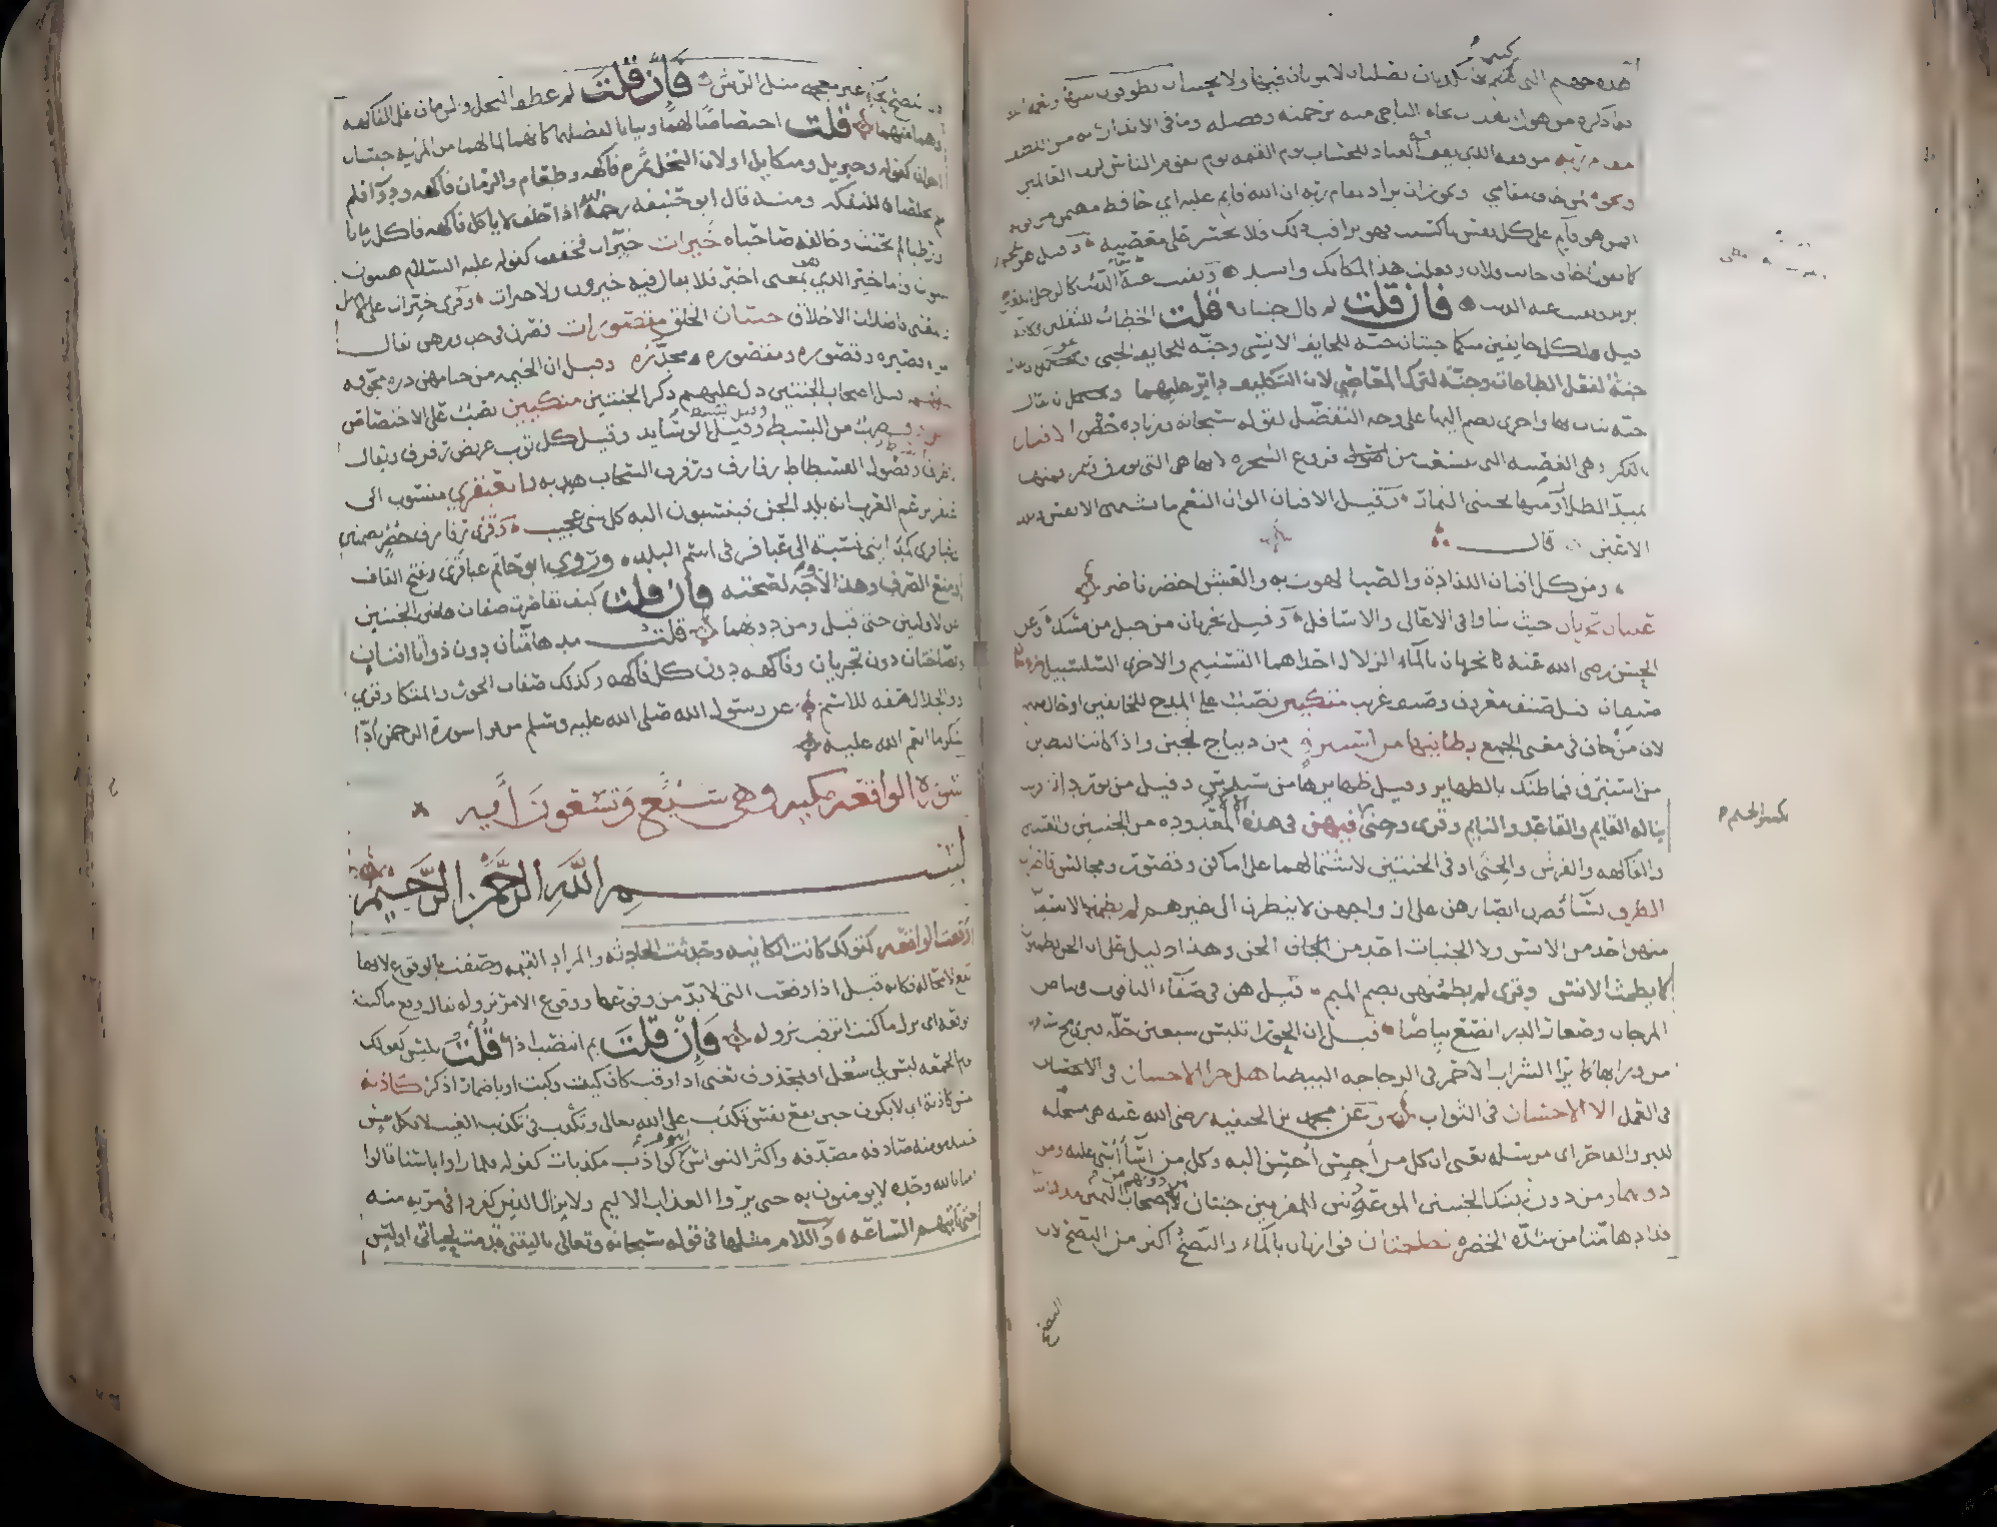 هذه جهنم التي
بما ذكره من هوان
مقام ربه موقفه الذي يقف فيه العباد للحساب يوم القيمه يوم يقوم الناس لرب العالمين
ونحوه لمن خاف مقامي ويجوز ان يراد بمقام ربه ان الله قايم عليه اي حافظ مهيمن من قوله
افمن هو قايم على كل نفس بما كسبت فهو يراقب ذلك ولا يجسر على معصيته وقيل هو مقحم
كما تقول اخاف جانب فلان وفعلت هذا لمكانك وانشد ونفيت عنه مقام الذئب كالرجل اللعين
يريد ونفيت عنه الذئب فان قلت لم قال جنتان قلت الخطاب للثقلين فكانه
قيل ولكل خايفين منكما جنتان جنة للخايف الانسي وجنة للخايف الجني ويجوز ان يقال
جنة لفعل الطاعات وجنة لترك المعاصي لان التكليف داير عليهما ويحتمل ان يقال
جنة يثاب بها واخرى تضم اليها على وجه التفضل لقوله سبحانه وزيادة خص الافنان
بالذكر وهي الغصنة التي تتشعب من فروع الشجره لانها هي التي تورق وتثمر فمنها
تمتد الظلال ومنها تجتنى الثمار وقيل الافنان الوان النعم ما تشتهي الانفس وتلذ
الاعين قال
ومن كل افنان اللذاذة والصبا لهوت به والعيش اخضر ناضر
عينان تجريان حيث شاوا في الاعالي والاسافل وقيل تجريان من جبل من مسك وعن
الحسن رضي الله عنه تجريان بالماء الزلال احداهما التسنيم والاخرى السلسبيل زوجان
صنفان قيل صنف معروف وصنف غريب متكيين نصب على المدح للخايفين او حال منهم
لان من خاف في معنى الجمع بطاينها من استبرق من ديباج ثخين واذا كانت البطاين
من استبرق فما ظنك بالظهاير وقيل ظهايرها من سندس وقيل من نور دان قريب
يناله القايم والقاعد والنايم وقرى وجنى فيهن في هذه الالاء المعدوده من الجنتين والعينين
والفاكهه والفرش والجنى او في الجنتين لاشتمالهما على اماكن وقصور ومجالس قاصرات
الطرف نساء قصرن ابصارهن على ازواجهن لا ينظرن الى غيرهم لم يطمث الانسيات
منهن احد من الانس ولا الجنيات احد من الجن وهذا دليل على ان الجن يطمثون
كما يطمث الانس وقرى لم يطمثهن بضم الميم قيل هن في صفاء الياقوت وبياض
المرجان وصغار الدر انصع بياضا قيل ان الحورا تلبس سبعين حلة فيرى مخ ساقها
من ورايها كما يرا الشراب الاحمر في الزجاجه البيضا هل جزا الاحسان في
العمل الا الاحسان في الثواب وعن محمد بن الحنفيه رضي الله عنه هي مسجله
للبر والفاجر اي مرسله يعني ان كل من احسن احسن اليه وكل من اساء اسي عليه ومن
دونهما ومن دون تينك الجنتين الموعودتين للمقربين جنتان لمن دونهم من اصحاب اليمين مدهامتان
قد ادهامتا من شدة الخضره نضاختان فوارتان بالماء والنضخ اكثر من النضح لان
النضح
النضح غير معجمه مثل الرش فان قلت لم عطف النخل والرمان على الفاكهه
وهما منهما قلت اختصاصا لهما وبيانا لفضلهما كانهما لما لهما من المزيه جنسان
اخران كقوله وجبريل وميكايل او لان النخل ثمره فاكهه وطعام والرمان فاكهه ودواء فلم
يخلصا للتفكه ومنه قال ابو حنيفه رحمه الله اذا حلف لا ياكل فاكهه فاكل رمانا
او رطبا لم يحنث وخالفه صاحباه خيرات خيرات فخففت كقوله عليه السلام هينون
لينون واما خير الذي هو بمعنى اخير فلا يقال فيه خيرون ولا خيرات وقرى خيرات على الاصل
والمعنى فاضلات الاخلاق حسان الخلق مقصورات قصرن في خدورهن يقال
امراة قصيره وقصوره ومقصوره مخدره وقيل ان الخيمه من خيامهن دره مجوفه
قبلهم قبل اصحاب الجنتين دل عليهم ذكر الجنتين متكيين نصب على الاختصاص
والرفرف ضرب من البسط وقيل البسط وقيل الوسايد وقيل كل ثوب عريض رفرف ويقال
لاطراف البسط وفضول الفسطاط رفارف ورفرف السحاب هيدبه والعبقري منسوب الى
عبقر تزعم العرب انه بلد الجن فينسبون اليه كل شي عجيب وقرى رفارف خضر بضمتين
وعباقري كمدايني نسبة الى عباقر في اسم البلد وروى ابو حاتم عباقرى بفتح القاف
ومنع الصرف وهذا لا وجه لصحته فان قلت كيف تقاصرت صفات هاتين الجنتين
عن الاولين حتى قيل ومن دونهما قلت مدهامتان دون ذواتا افنان
ونضاختان دون تجريان وفاكهه دون كل فاكهه وكذلك صفات الحور والمتكا وقرى
ذو الجلال صفه للاسم عن رسول الله صلى الله عليه وسلم من قرا سورة الرحمن ادى
شكر ما انعم الله عليه
سورة الواقعه مكيه وهي سبع وتسعون أيه
بسم الله الرحمن الرحيم
وقعت الواقعه كقولك كانت الكاينه وحدثت الحادثه والمراد القيمه وصفت بالوقوع لانها
تقع لا محاله فكانه قيل اذا وقعت التي لا بد من وقوعها ووقوع الامر نزوله يقال وقع ما كنت
اتوقعه اي نزل ما كنت اترقب نزوله فان قلت بم انتصب اذا قلت بليس كقولك
يوم الجمعه ليس لي شغل او بمحذوف يعني اذا وقعت كان كيت وكيت او باضمار اذكر كاذبة
نفس كاذبة اي لا يكون حين تقع نفس تكذب على الله تعالى وتكذب في تكذيب الغيب لان كل نفس
حينيذ مومنه صادقه مصدقه واكثر النفوس اليوم كواذب مكذبات كقوله فلما راوا باسنا قالوا
امنا بالله وحده لا يومنون به حتى يروا العذاب الاليم ولا يزال الذين كفروا في مريه منه
حتى تاتيهم الساعه واللام مثلها في قوله سبحانه وتعالى يا ليتني قدمت لحياتي او ليس